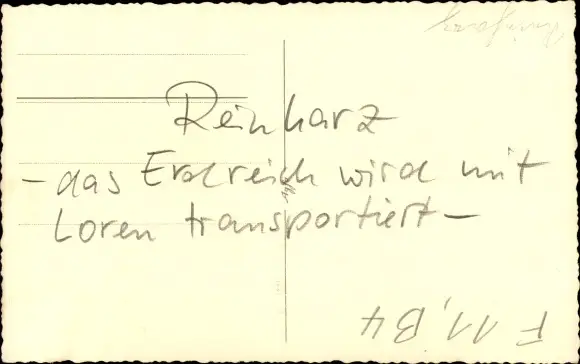 Reinharz
- das Erdreich wird mit
Loren transportiert -
F 11, B4